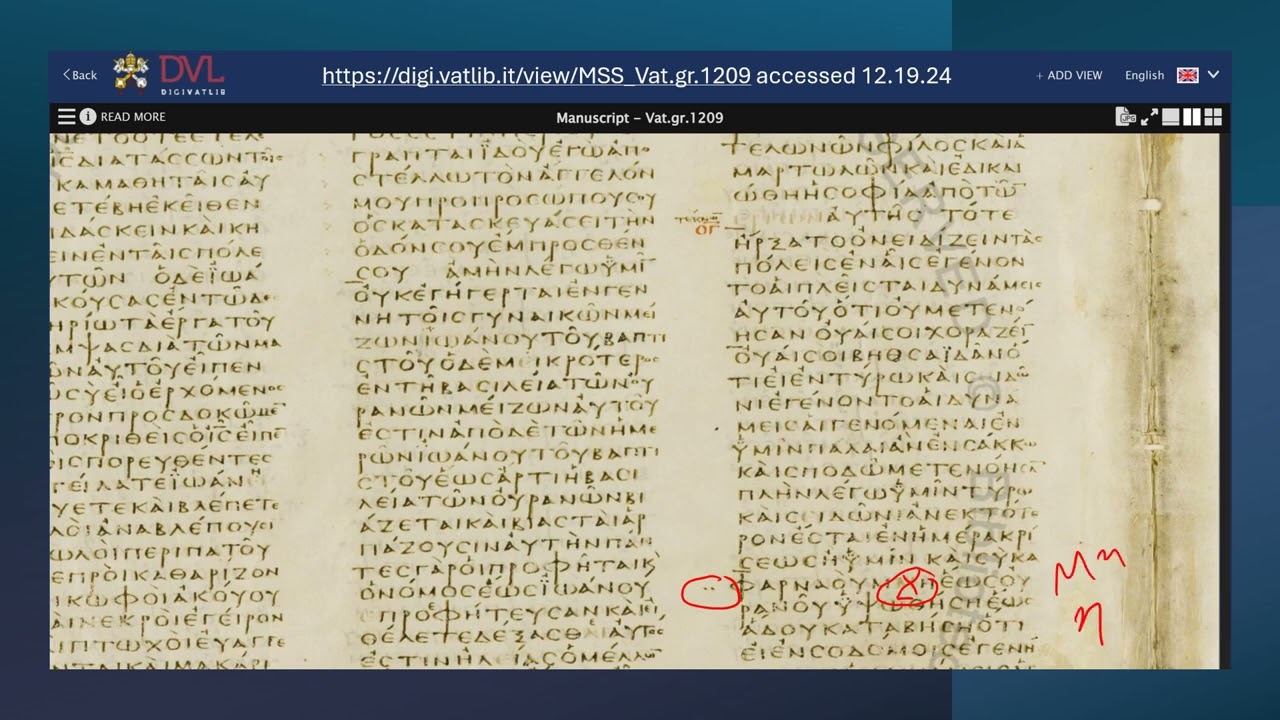 Back
DVL
DIGIVATLIB
https://digi.vatlib.it/view/MSS_Vat.gr.1209 accessed 12.19.24
+ ADD VIEW
English
READ MORE
Manuscript – Vat.gr.1209
JPG
ΔΙΑΤΑϹϹΩΝΤΟΙϹ
ΚΑΜΑΘΗΤΑΙϹΑΥ
ΕΤΕΒΗΕΚΕΙΘΕΝ
ΙΔΑϹΚΕΙΝΚΑΙΚΗ
ΕΙΝΕΝΤΑΙϹΠΟΛΕ
ΥΤΩΝ ΟΔΕΪΩΑ
ΚΟΥϹΑϹΕΝΤΩΔΕ
ΗΡΙΩΤΑΕΡΓΑΤΟΥ
ΜΨΑϹΔΙΑΤΩΝΜΑ
ΩΝΑΥΤΟΥΕΙΠΕΝ
ϹΥΕΙΟΕΡΧΟΜΕΝΟϹ
ΡΟΝΠΡΟϹΔΟΚΩΜΕ
ΠΟΚΡΙΘΕΙϹΟΙϹΕΙΠΕ
ΙϹΠΟΡΕΥΘΕΝΤΕϹ
ΓΕΙΛΑΤΕΪΩΑΝΗ
ΥΕΤΕΚΑΙΒΛΕΠΕΤΕ
ΛΟΙΑΝΑΒΛΕΠΟΥϹΙ
ΩΛΟΙΠΕΡΙΠΑΤΟΥ
ΕΠΡΟΙΚΑΘΑΡΙΖΟΝ
ΙΚΩΦΟΙΑΚΟΥΟΥ
ΑΙΝΕΚΡΟΙΕΓΕΙΡΟΝ
ΙΠΤΩΧΟΙΕΥΑΓΓΕ
ΝΤΑΙΚΑΙΜΑΚΑΡΙ
ΓΡΑΠΤΑΙΪΔΟΥΕΓΩΑΠΟ
ϹΤΕΛΛΩΤΟΝΑΓΓΕΛΟΝ
ΜΟΥΠΡΟΠΡΟϹΩΠΟΥϹΟΥ
ΟϹΚΑΤΑϹΚΕΥΑϹΕΙΤΗΝ
ΟΔΟΝϹΟΥΕΜΠΡΟϹΘΕΝ
ϹΟΥ ΑΜΗΝΛΕΓΩΫΜΙ̅
ΟΥΚΕΓΗΓΕΡΤΑΙΕΝΓΕΝ
ΝΗΤΟΙϹΓΥΝΑΙΚΩΝΜΕΙ
ΖΩΝΪΩΑΝΟΥΤΟΥΒΑΠΤΙ
ϹΤΟΥΟΔΕΜΕΙΚΡΟΤΕΡΟϹ
ΕΝΤΗΒΑϹΙΛΕΙΑΤΩΝΟΥ
ΡΑΝΩΝΜΕΙΖΩΝΑΥΤΟΥ
ΕϹΤΙΝΑΠΟΔΕΤΩΝΗΜΕ
ΡΩΝΪΩΑΝΟΥΤΟΥΒΑΠΤΙ
ϹΤΟΥΕΩϹΑΡΤΙΗΒΑϹΙ
ΛΕΙΑΤΩΝΟΥΡΑΝΩΝΒΙ
ΑΖΕΤΑΙΚΑΙΒΙΑϹΤΑΙΑΡ
ΠΑΖΟΥϹΙΝΑΥΤΗΝΠΑΝ
ΤΕϹΓΑΡΟΙΠΡΟΦΗΤΑΙΚ
ΟΝΟΜΟϹΕΩϹΪΩΑΝΟΥ
ΕΠΡΟΦΗΤΕΥϹΑΝΚΑΙΕΙ
ΘΕΛΕΤΕΔΕΞΑϹΘΑΙΑΥΤΟϹ
ΕϹΤΙΝΗΛΕΙΑϹΟΜΕΛΛΩ
ΤΕΛΩΝΩΝΦΙΛΟϹΚΑΙΑ
ΜΑΡΤΩΛΩΝΚΑΙΕΔΙΚΑΙ
ΩΘΗΗϹΟΦΙΑΑΠΟΤΩ̅
ΑΥΤΗϹ ΤΟΤΕ
ΟΓ
ΗΡΞΑΤΟΟΝΕΙΔΙΖΕΙΝΤΑϹ
ΠΟΛΕΙϹΕΝΑΙϹΕΓΕΝΟΝ
ΤΟΑΙΠΛΕΙϹΤΑΙΔΥΝΑΜΕΙϹ
ΑΥΤΟΥΟΤΙΟΥΜΕΤΕΝΟ
ΗϹΑΝ ΟΥΑΙϹΟΙΧΟΡΑΖΕΙ̅
ΟΥΑΙϹΟΙΒΗΘϹΑΪΔΑΝΟ
ΤΙΕΙΕΝΤΥΡΩΚΑΙϹΙΔΩ
ΝΙΕΓΕΝΟΝΤΟΑΙΔΥΝΑ
ΜΕΙϹΑΙΓΕΝΟΜΕΝΑΙΕΝ
ΫΜΙΝΠΑΛΑΙΑΝΕΝϹΑΚΚΩ
ΚΑΙϹΠΟΔΩΜΕΤΕΝΟΗϹΑ̅
ΠΛΗΝΛΕΓΩΫΜΙΝΤΥΡΩ
ΚΑΙϹΙΔΩΝΙΑΝΕΚΤΟΤΕ
ΡΟΝΕϹΤΑΙΕΝΗΜΕΡΑΚΡΙ
ϹΕΩϹΗΫΜΙΝ ΚΑΙϹΥΚΑ
ΦΑΡΝΑΟΥΜΜΗΕΩϹΟΥ
ΡΑΝΟΥΫΨΩΘΗϹΗΕΩϹ
ΑΔΟΥΚΑΤΑΒΗϹΗΟΤΙ
ΕΙΕΝϹΟΔΟΜΟΙϹΕΓΕΝΗ
Μη
η